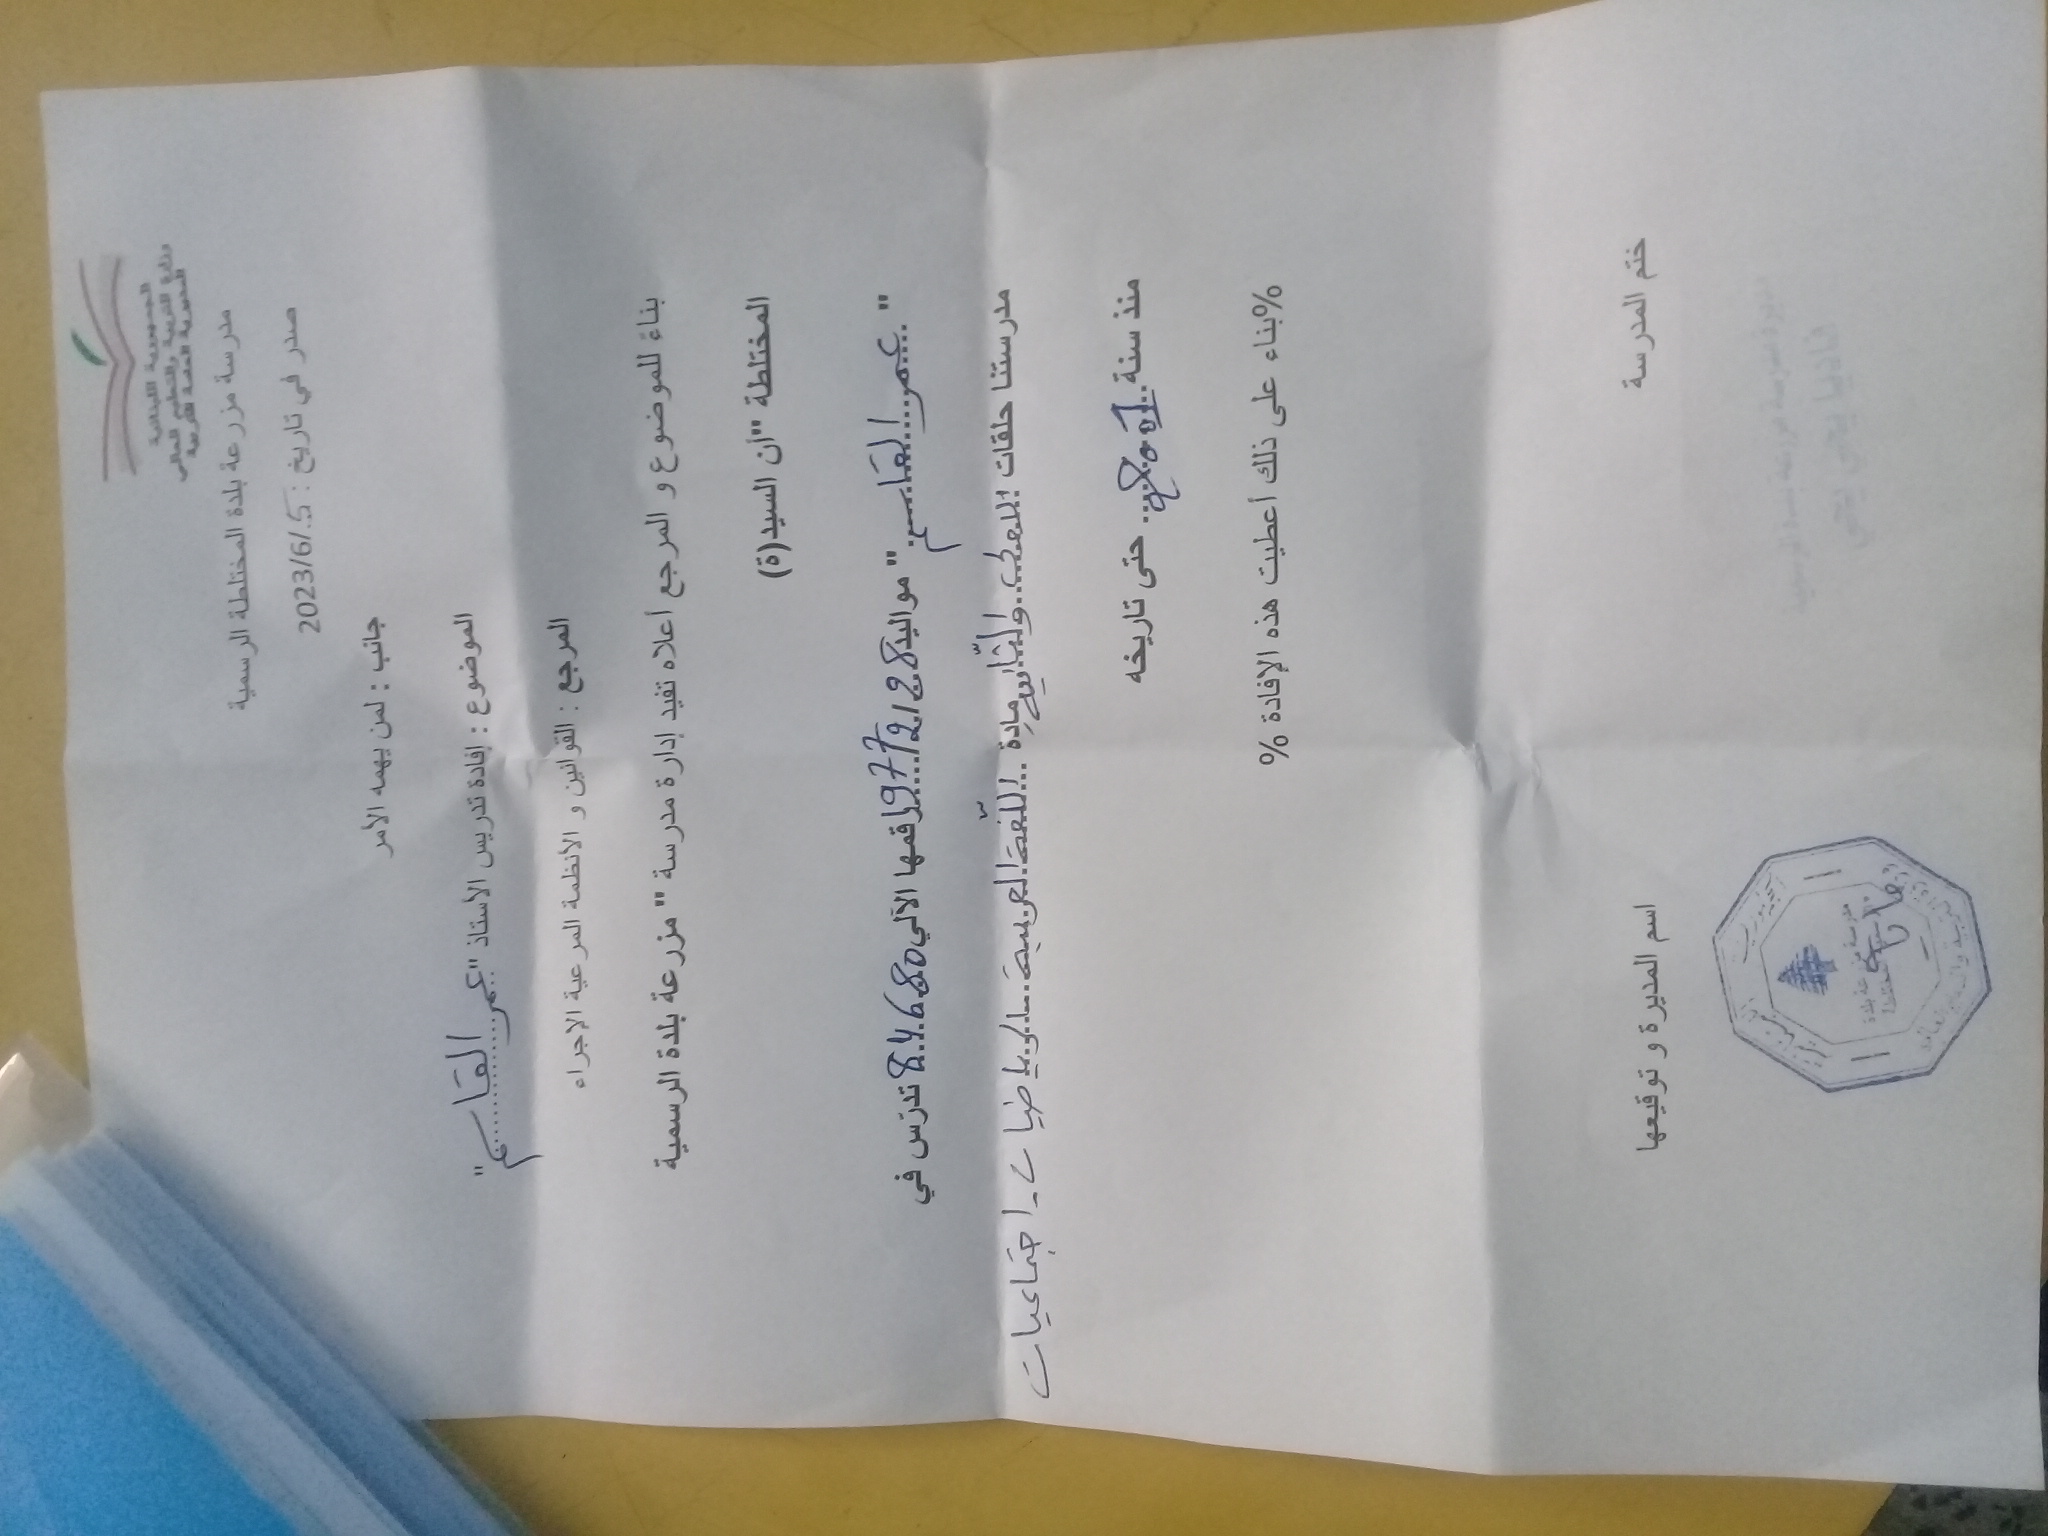 الجمهورية اللبنانية
وزارة التربية والتعليم العالي
المديرية العامة للتربية
مدرسة مزرعة بلدة المختلطة الرسمية
صدر في تاريخ : 2023/6/.5
جانب : لمن يهمه الأمر
الموضوع : إفادة تدريس الأستاذ "عمر القاسم"
المرجع : القوانين و الأنظمة المرعية الإجراء
بناءً للموضوع و المرجع أعلاه تفيد إدارة مدرسة " مزرعة بلدة الرسمية
المختلطة "أن السيد(ة)
" عمر القاسم " مواليد 1977/2/28 رقمها الآلي 84680 تدرّس في
مدرستنا حلقات الأولى والثانية مادة اللّغة العربية - رياضيات - اجتماعيات
منذ سنة حتى تاريخه
%بناء على ذلك أعطيت هذه الإفادة %
ختم المدرسة
اسم المديرة و توقيعها
مدرسة مزرعة بلدة